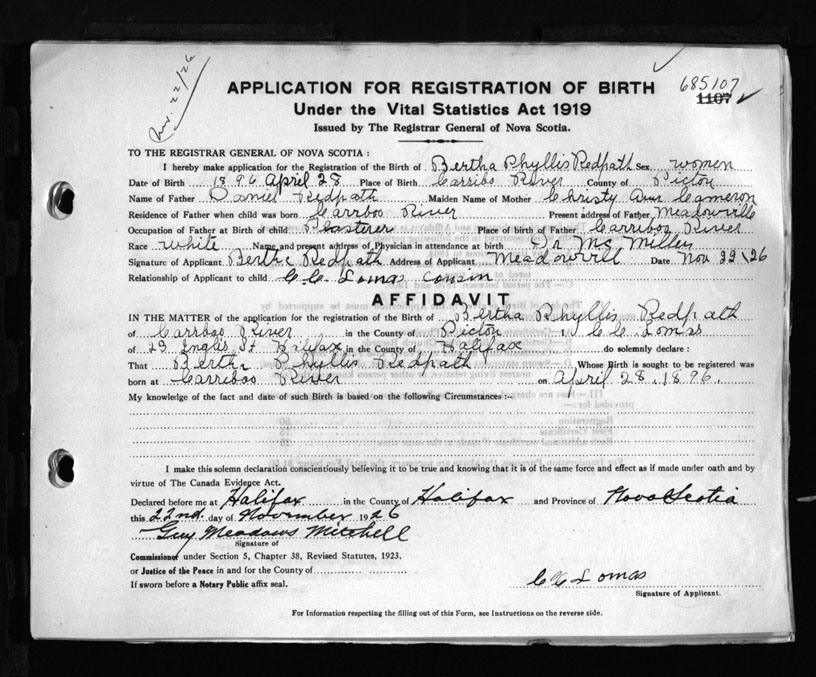 Nov. 22/26
685107
1107
APPLICATION FOR REGISTRATION OF BIRTH
Under the Vital Statistics Act 1919
Issued by The Registrar General of Nova Scotia.
TO THE REGISTRAR GENERAL OF NOVA SCOTIA :
I hereby make application for the Registration of the Birth of Bertha Phyllis Redpath Sex women
Date of Birth 1896 April 28 Place of Birth Carribo River County of Pictou
Name of Father Daniel Redpath Maiden Name of Mother Christy Ann Cameron
Residence of Father when child was born Carrboo River Present address of Father Meadowville
Occupation of Father at Birth of child Plasterer Place of birth of Father Carriboo River
Race white Name and present address of Physician in attendance at birth Dr Mc Millen
Signature of Applicant Berthe Redpath Address of Applicant Meadowvill Date Nov 22\26
Relationship of Applicant to child C.C. Lomas cousin
AFFIDAVIT
IN THE MATTER of the application for the registration of the Birth of Bertha Phyllis Redpath
of Carrboo River in the County of Pictou I, C C Lomas
of 29 Inglis St Halifax in the County of Halifax do solemnly declare :
That Bertha Phyllis Redpath Whose Birth is sought to be registered was
born at Carriboo River on April 28, 1896.
My knowledge of the fact and date of such Birth is based on the following Circumstances :–
I make this solemn declaration conscientiously believing it to be true and knowing that it is of the same force and effect as if made under oath and by
virtue of The Canada Evidence Act.
Declared before me at Halifax in the County of Halifax and Province of Nova Scotia
this 22nd day of November 1926
Guy Meadows Mitchell
Signature of
Commissioner under Section 5, Chapter 38, Revised Statutes, 1923.
or Justice of the Peace in and for the County of
If sworn before a Notary Public affix seal.
C C Lomas
Signature of Applicant.
For Information respecting the filling out of this Form, see Instructions on the reverse side.